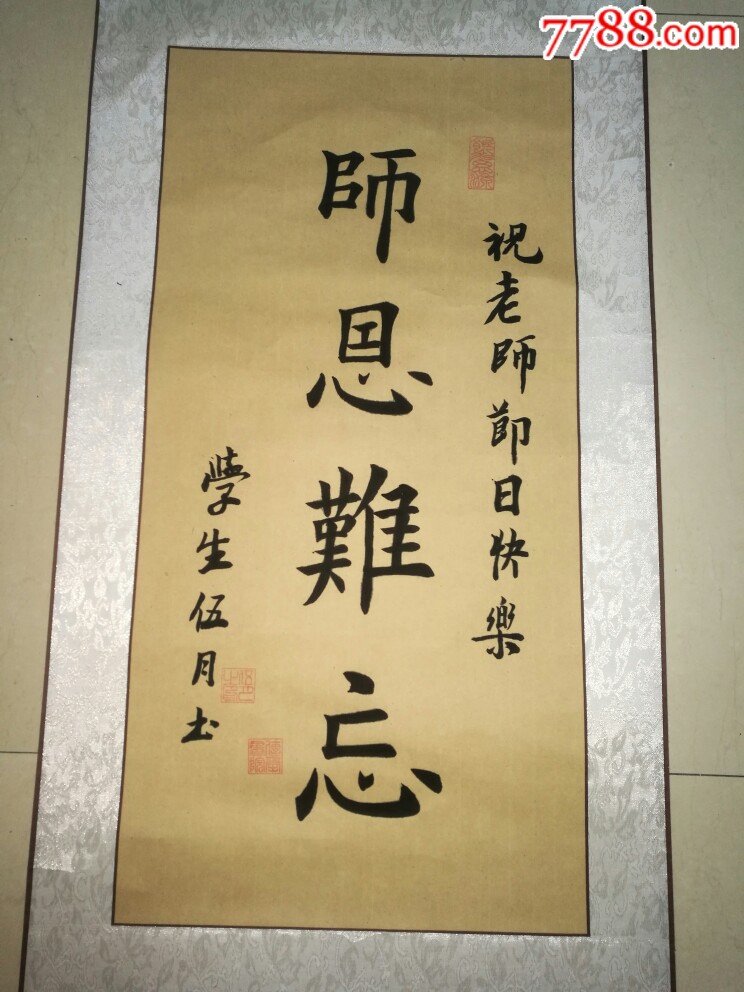 7788.com
祝老師節日快樂
師恩難忘
學生伍月书